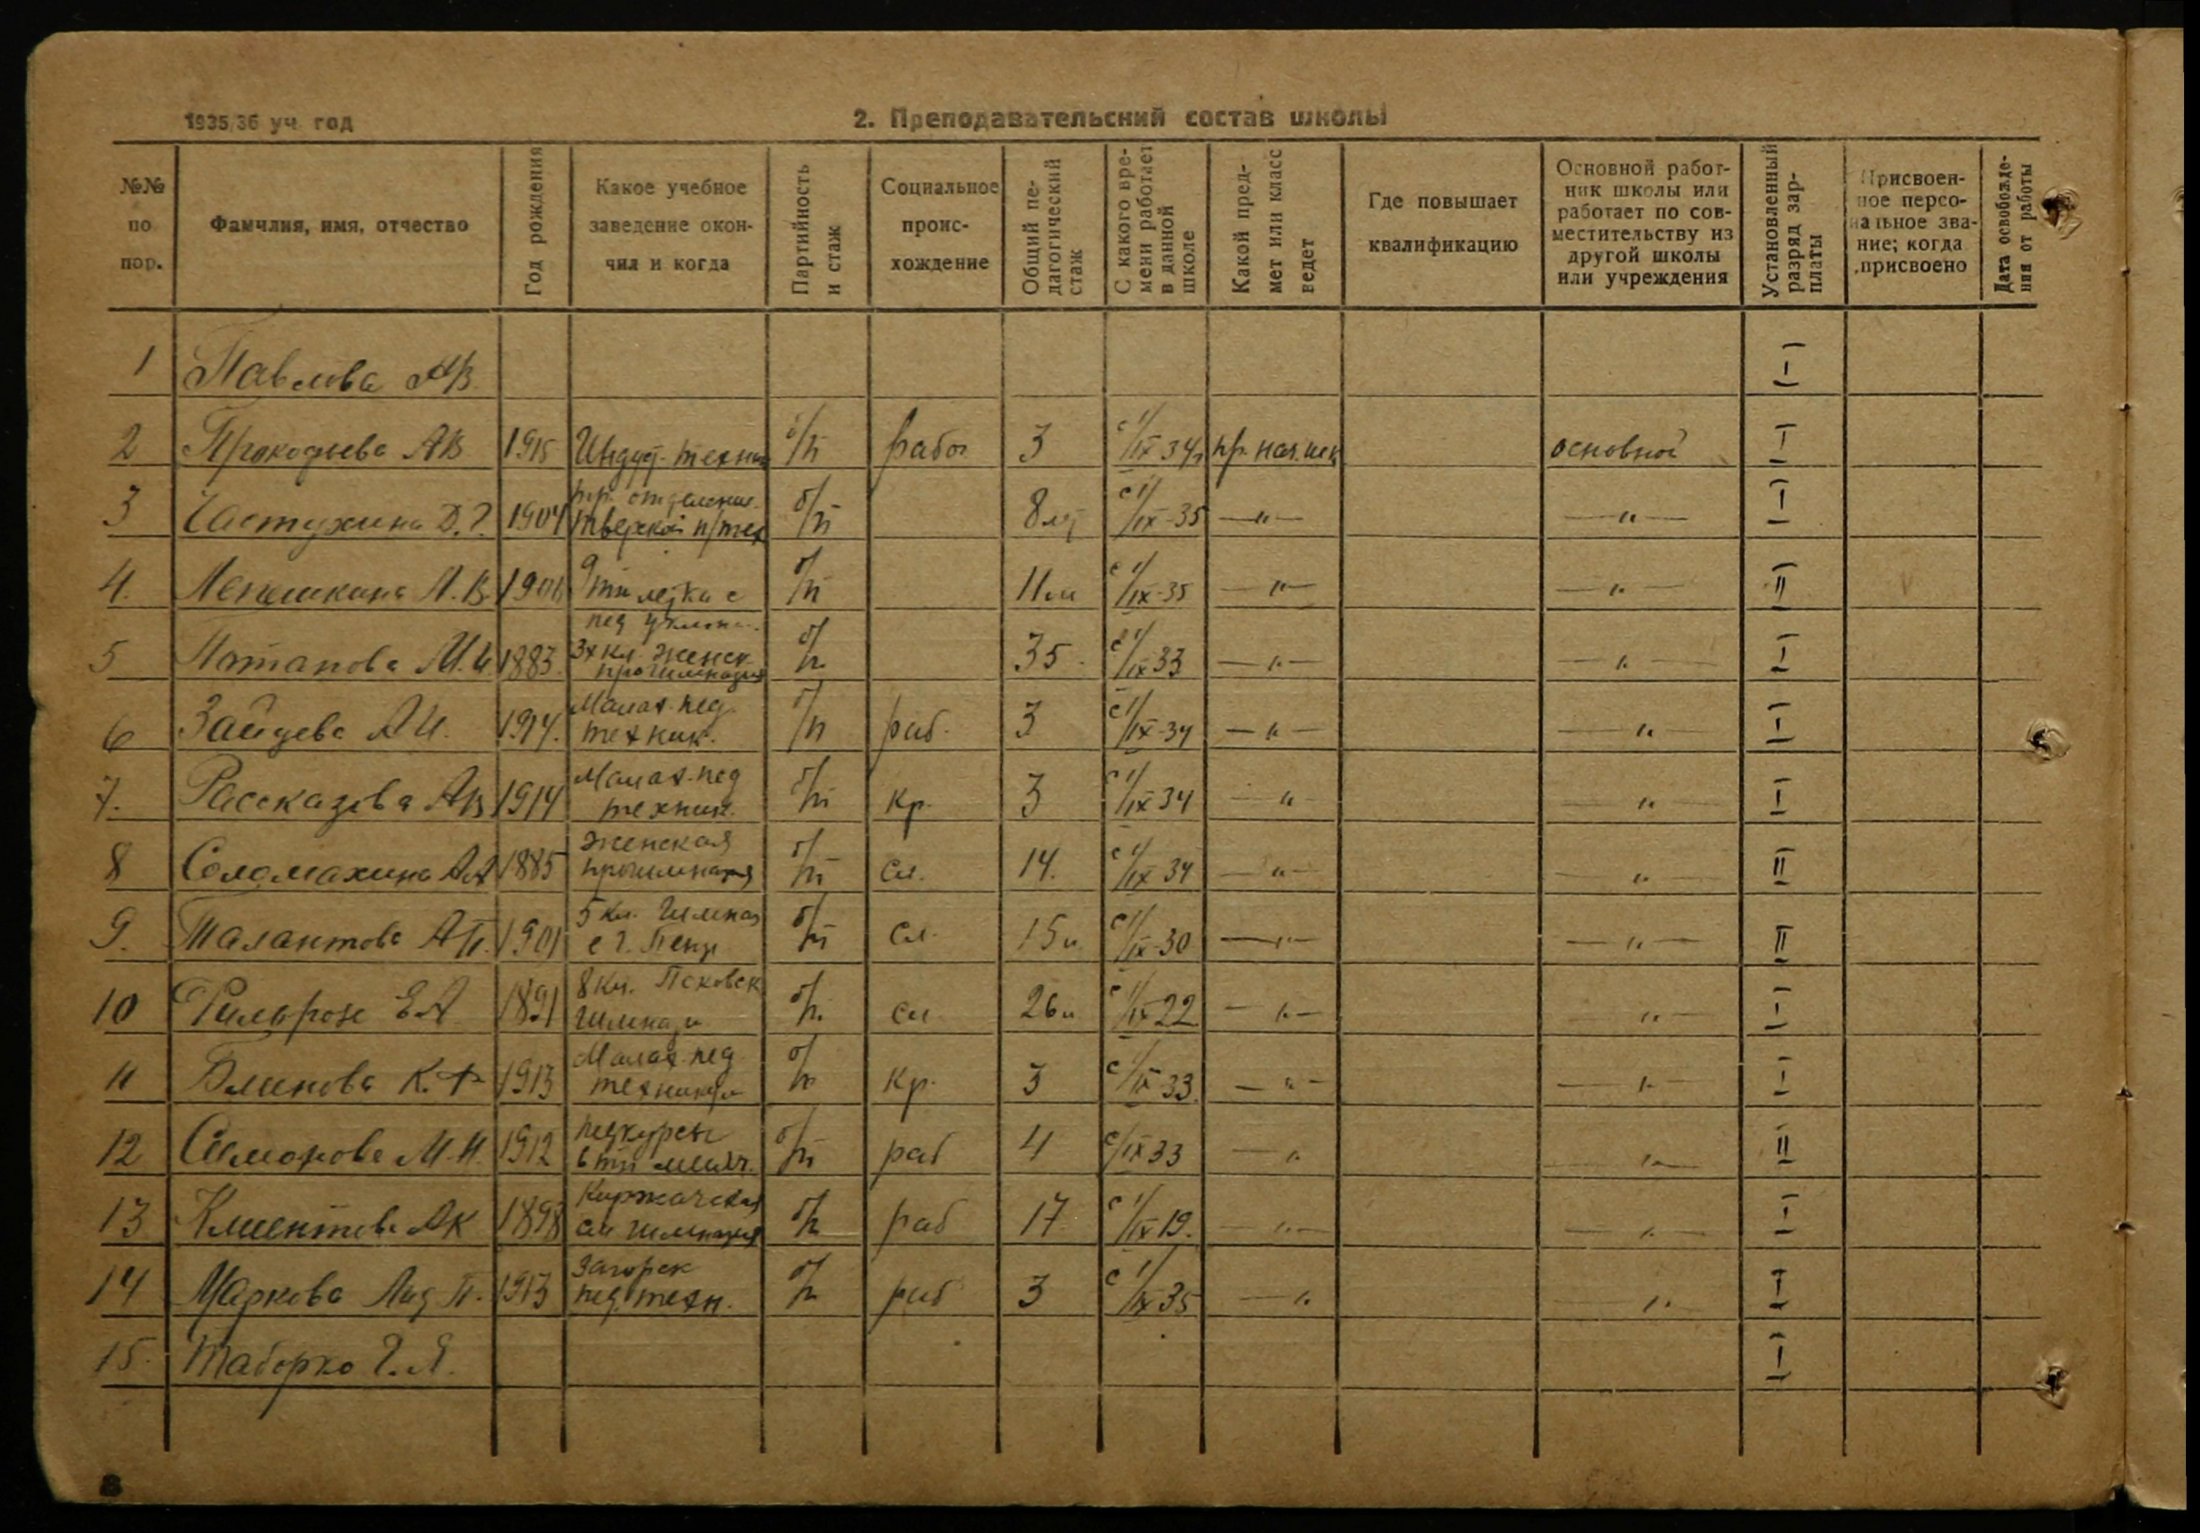 1935/36 уч. год
2. Преподавательский состав школы
№№ по пор.
Фамилия, имя, отчество
Год рождения
Какое учебное заведение окончил и когда
Партийность и стаж
Социальное происхождение
Общий педагогический стаж
С какого времени работает в данной школе
Какой предмет или класс ведет
Где повышает квалификацию
Основной работник школы или работает по совместительству из другой школы или учреждения
Установленный разряд зарплаты
Присвоенное персональное звание; когда присвоено
Дата освобождения от работы
1 Павлова А В. I
2 Прокофьева А В 1915 Индуст. техник б/п рабоч 3 с 1/IX 34 г пр. нач. шк основной I
3 Частухина Д. Г. 1904 отделение Тверской п/тех б/п 8 лет с 1/IX-35 — " — — " — I
4. Лепешкина М. В. 1906 9ти летка с пед уклоном б/п 11 л с 1/IX-35 — " — — " — II
5 Потапова М. И. 1883. 3х кл. женск. прогимназия б/п. 35. с 1/IX 33 — " — — " — I
6 Зайцева А И. 1914. Малах. пед. техник. б/п раб. 3 с 1/IX-34 — " — — " — I
7. Рассказова А В 1914 Малах. пед техник. б/п кр. 3 с 1/IX 34 — " — — " — I
8 Соломахина А А 1885 Женская прогимназия б/п сл. 14. с 1/IX 34 — " — — " — II
9. Талантова А П. 1901 5 кл. гимназ с г. Пенз б/п сл. 15 л. с 1/IX-30 — " — — " — II
10 Фильрозе Е А 1891 8 кл. Псковск гимнази б/п. сл. 26 л с 1/IX 22 — " — — " — I
11 Блинова К. Ф 1913 Малах. пед. техникум б/п кр. 3 с 1/IX-33. — " — — " — I
12 Симонова М. И. 1912 педкурсы 6 ти мес. б/п раб 4 с/IX 33 — " — " — II
13 Климентова А К 1898 Киржачская гимназия б/п раб 17 с 1/IX 19. — " — — " — I
14 Маркова Лид П. 1913 Загорск пед. техн. б/п раб 3 с 1/IX 35 — " — " I
15. Таборко Г. Я. I
8